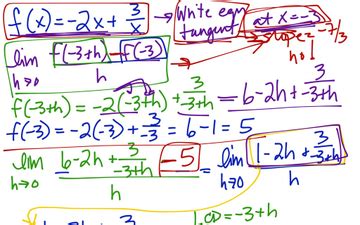 f(x) = -2x + 3/x → Write eqn tangent at x = -3
slope = -7/3
lim h→0 f(-3+h) - f(-3) / h
h→0
f(-3+h) = -2(-3+h) + 3/-3+h = 6-2h+ 3/-3+h
f(-3) = -2(-3) + 3/-3 = 6-1 = 5
lim h→0 6-2h+ 3/-3+h -5 / h = lim h→0 1-2h+ 3/-3+h / h
LCD = -3+h